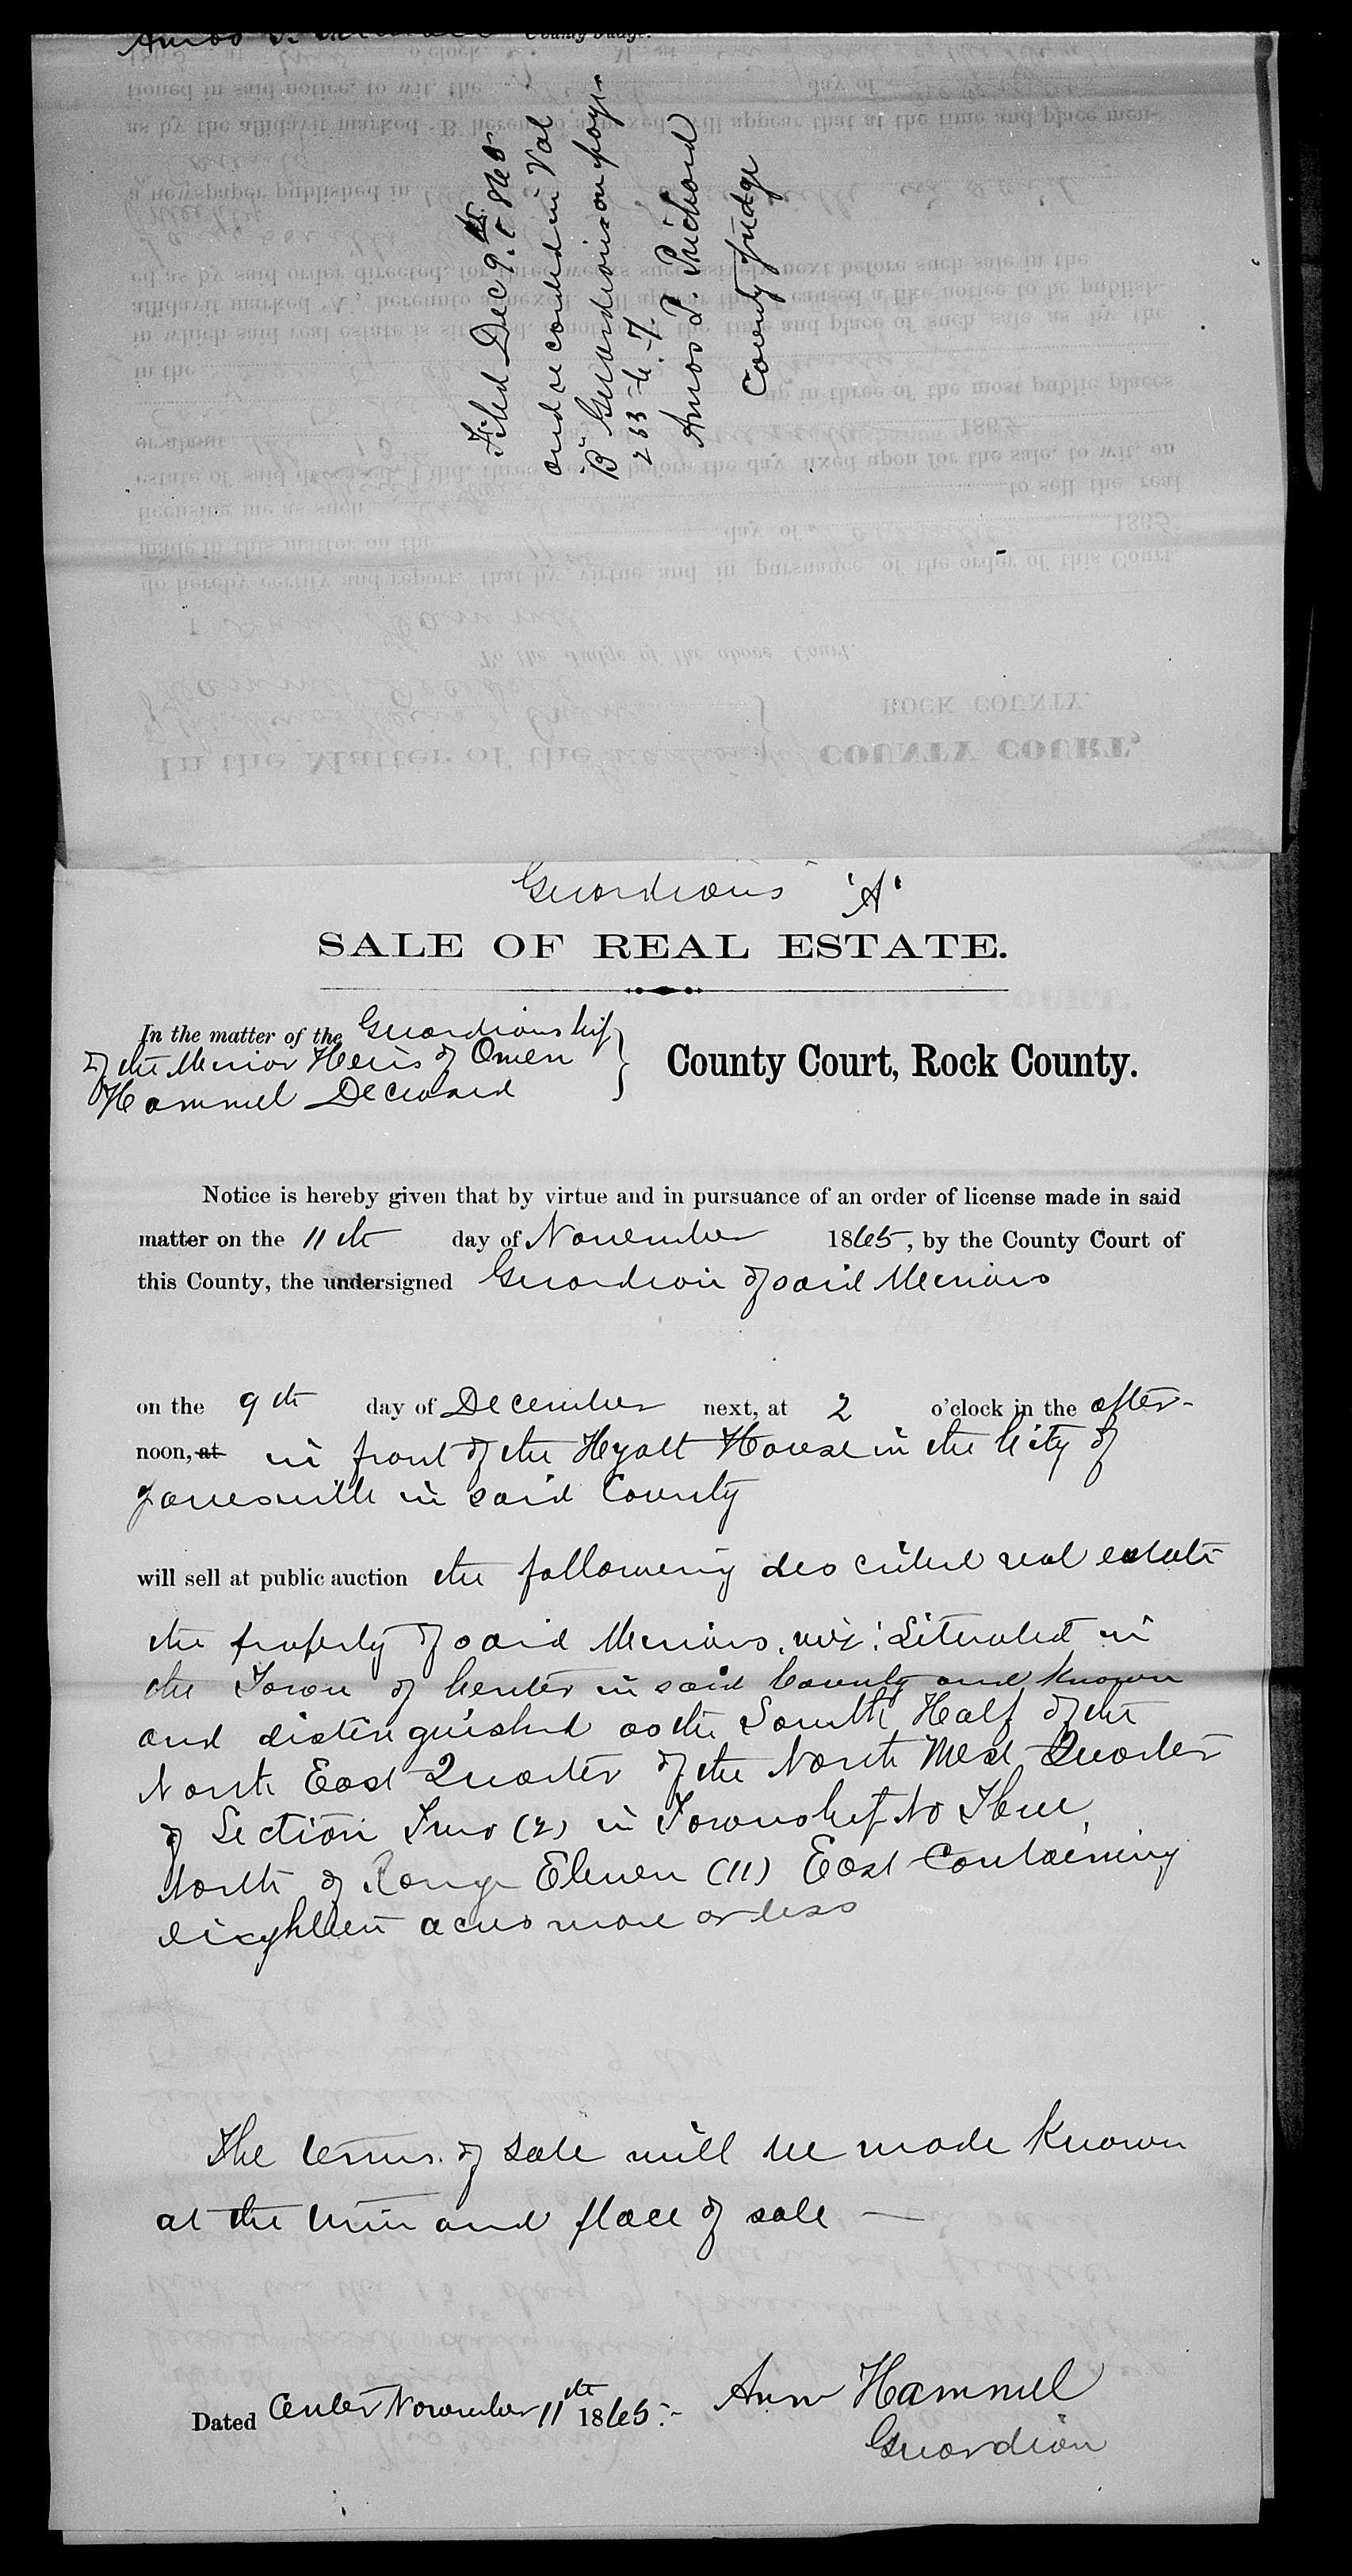 County Judge.
Filed Dec 9th 1865
and recorded in Vol
"B" Guardians on page
2 6 3 - 6. - 7.
Amos P. Prichard
County Judge
Guardians 'A'
SALE OF REAL ESTATE.
In the matter of the Guardianship
of the Minor Heirs of Owen
Hammel Deceased
County Court, Rock County.
Notice is hereby given that by virtue and in pursuance of an order of license made in said
matter on the 11th day of November 1865, by the County Court of
this County, the undersigned Guardian of said Minors
on the 9th day of December next, at 2 o'clock in the after-
noon, at in front of the Hyatt House in the City of
Janesville in said County
will sell at public auction the following described real estate
the property of said Minors, viz: Situated in
the Town of Center in said County and known
and distinguished as the South Half of the
North East Quarter of the North West Quarter
of Section Two (2) in Township No Three
North of Range Eleven (11) East Containing
acres more or less
The terms of sale will be made known
at the time and place of sale —
Dated Center November 11th 1865.-
Ann Hammel
Guardian